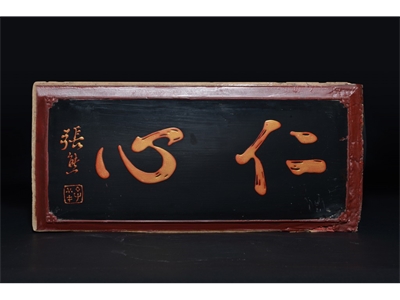 仁心
張熊